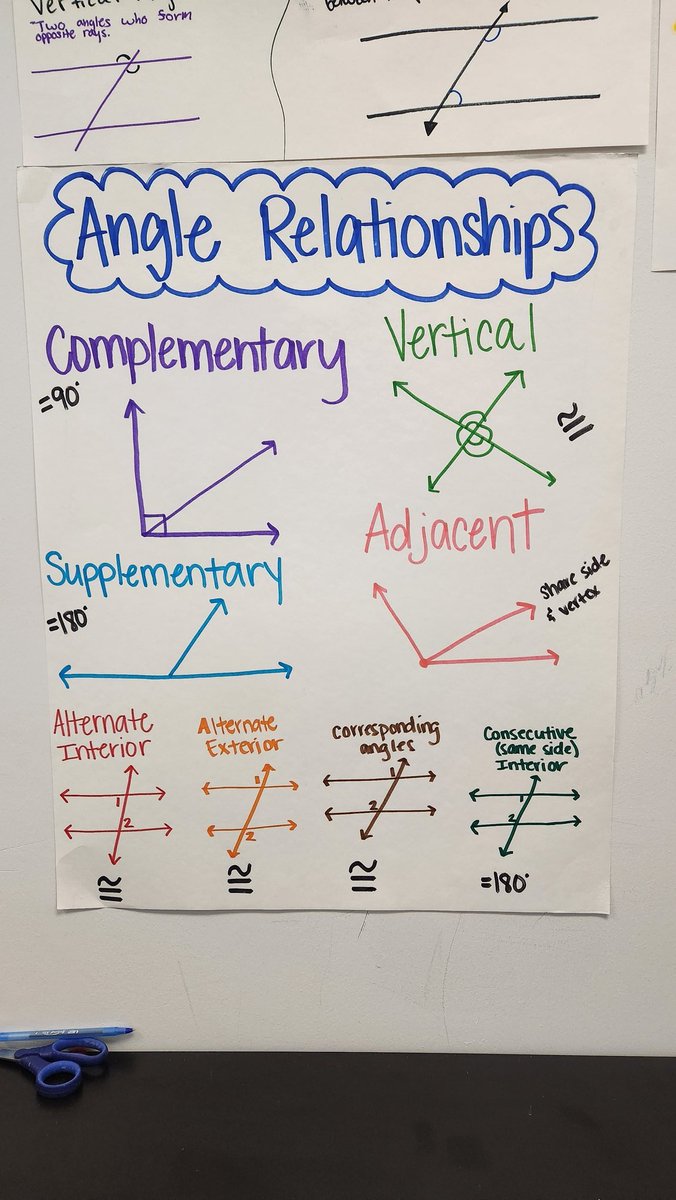 Vertical
~Two angles who form
opposite rays.
Angle Relationships
Complementary
=90°
Vertical
≅
Supplementary
=180°
Adjacent
share side
& vertex
Alternate
Interior
1
2
≅
Alternate
Exterior
1
2
≅
corresponding
angles
1
2
≅
Consecutive
(same side)
Interior
1
2
=180°